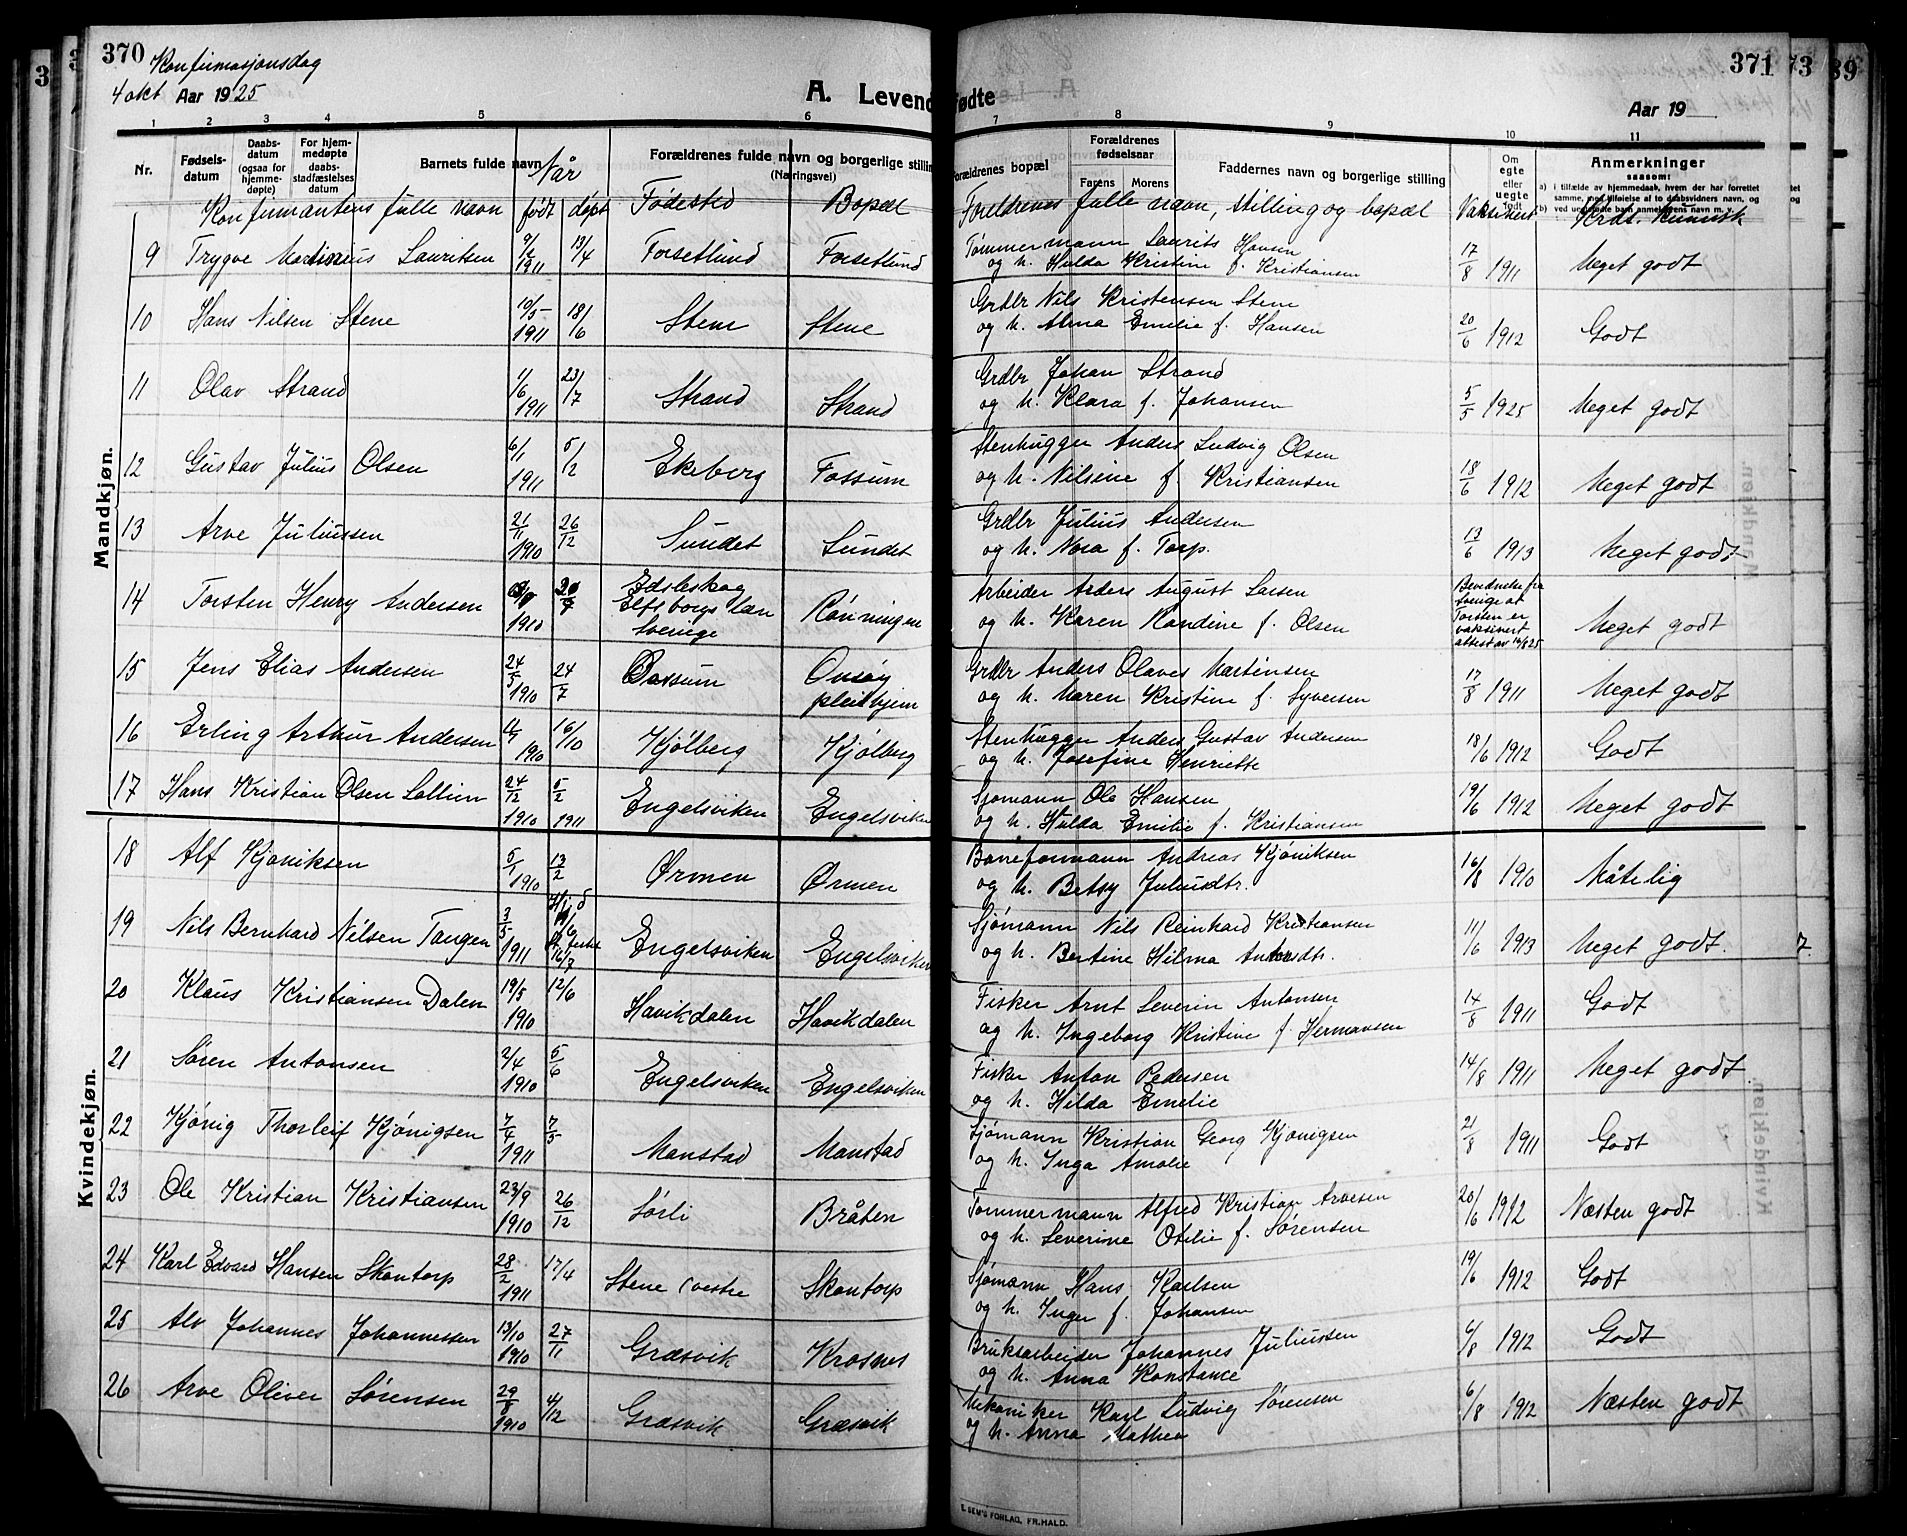 370 Konfirmasjonsdag
4 okt Aar 1925
A. Levendefødte
371
Aar 19
1 2 3 4 5 6 7 8 9 10 11
Nr. Fødsels-datum Daabs-datum (ogsaa for hjemme-døpte) For hjem-medøpte daabs-stadfæstelses datum Barnets fulde navn Når Forældrenes fulde navn og borgerlige stilling (Næringsvei) Forældrenes bopæl Forældrenes fødselsaar Farens Morens Faddernes navn og borgerlige stilling Om egte eller uegte født Anmerkninger saasom:
a) i tilfælde av hjemmedaab, hvem der har forrettet samme, med tilføielse af to daabsvidners navn, og
b) ved uegtefødte barn anmelderens navn m. v.
Konfirmantens fulle navn født døpt Fødested Bopæl Foreldrenes fulle navn, stilling og bopæl Vaksinert Krdt. kunnsk
Mandkjøn.
9 Trygve Martinius Lauritsen 9/2 1911 13/4 Forsetlund Forsetlund Tømmermann Laurits Hansen og h. Hulda Kristine f. Kristiansen 17/8 1911 Meget godt
10 Hans Nilsen Stene 19/5 1911 18/6 Stene Stene Grdbr Nils Kristensen Stene og h. Alma Emilie f. Hansen 20/6 1912 Godt
11 Olav Strand 1/6 1911 23/7 Strand Strand Grdbr Johan Strand og h. Klara f. Johansen 5/5 1925 Meget godt
12 Gustav Julius Olsen 6/1 1911 5/2 Ekeberg Fossum Stenhugger Anders Ludvig Olsen og h. Nilsine f. Kristiansen 18/6 1912 Meget godt
13 Arve Juliussen 21/11 1910 26/12 Sundet Sundet Grdbr Julius Andersen og h. Nora f. Torp. 13/6 1913 Meget godt
14 Torsten Henry Andersen 1910 Edsleskog Elfsborgs län Sverige Rønningen Arbeider Anders August Larsen og h. Karen Randine f. Olsen Bevidnelse fra Sverige at Torsten er vaksinert attest av 16/8 25 Meget godt
15 Jens Elias Andersen 24/5 1910 24/7 Ovsøy pleiehjem Grdbr Anders Olaves Martinsen og h. Maren Kristine f. Syversen 17/8 1911 Meget godt
16 Erling Arthur Andersen 1910 16/10 Kjølberg Kjølberg Stenhugger Anders Gustav Andersen og h. Josefine Henriette 18/6 1912 Godt
17 Hans Kristian Olsen Lollien 24/12 1910 5/2 1911 Engelsviken Engelsviken Sjømann Ole Hansen og h. Hulda Emilie f. Kristiansen 19/6 1912 Meget godt
Kvindekjøn.
18 Alf Kjøniksen 5/1 1910 13/2 Ørmen Ørmen Baneformann Andreas Kjøniksen og h. Betsy Juliusdtr. 16/8 1910 Måtelig
19 Nils Bernhard Nilsen Tangen 3/5 1911 Hjd 11/6 16/7 Engelsviken Engelsviken Sjømann Nils Reinhard Kristiansen og h. Bertine Hilma 11/6 1913 Meget godt.
20 Klaus Kristiansen Dalen 19/5 1910 12/6 Havikdalen Havikdalen Fisker Arnt Severin Antonsen og h. Ingeborg Kristine f. Hermansen 14/8 1911 Godt
21 Søren Antonsen 2/4 1910 5/6 Engelsviken Engelsviken Fisker Anton Pedersen og h. Hilda Emelie 14/8 1911 Meget godt
22 Kjønig Thorleif Kjønigsen 7/4 1911 7/5 Manstad Manstad Sjømann Kristian Georg Kjønigsen og h. Inga Amalie 21/8 1911 Godt
23 Ole Kristian Kristiansen 23/9 1910 26/12 Sørli Bråten Tømmermann Alfred Kristian Arvesen og h. Severine Otilie f. Sørensen 20/6 1912 Næsten godt
24 Karl Edvard Hansen Skontorp 28/2 1911 17/4 Stene (vestre Skontorp Sjømann Hans Karlsen og h. Inger f. Johansen 19/6 1912 Godt
25 Alv Johannes Johannessen 13/10 1910 27/11 Græsvik Krosnes Bruksarbeider Johannes Juliussen og h. Anna Konstance 6/8 1912 Godt
26 Arve Oliver Sørensen 29/8 1910 4/12 Græsvik Græsvik Mekaniker Karl Ludvig Sørensen og h. Anna Mathea 6/8 1912 Næsten godt
E. SEM'S FORLAG, FR.HALD.